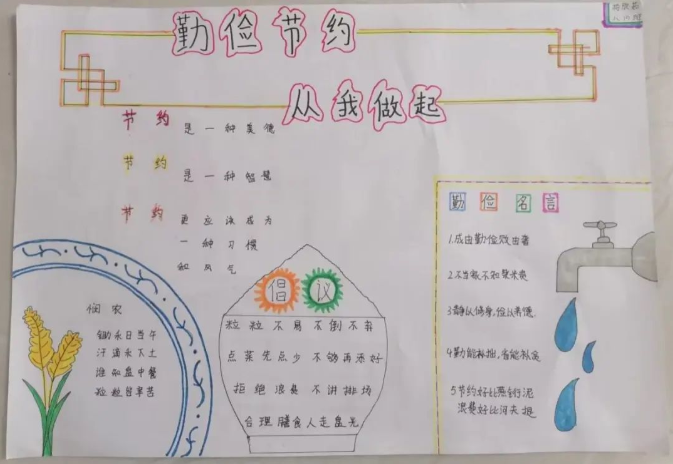 勤俭节约
从我做起
节约是一种美德
节约是一种智慧
节约更应该成为
一种习惯
和风气
悯农
锄禾日当午
汗滴禾下土
谁知盘中餐
粒粒皆辛苦
倡议
粒粒不易不剩不弃
点菜先点少不够再添好
拒绝浪费不讲排场
合理膳食人走盘光
勤俭名言
1.成由勤俭败由奢
2.不当家不知柴米贵
3.静以修身,俭以养德
4.勤能补拙,省能补贫
5.节约好比燕衔泥
浪费好比河决堤